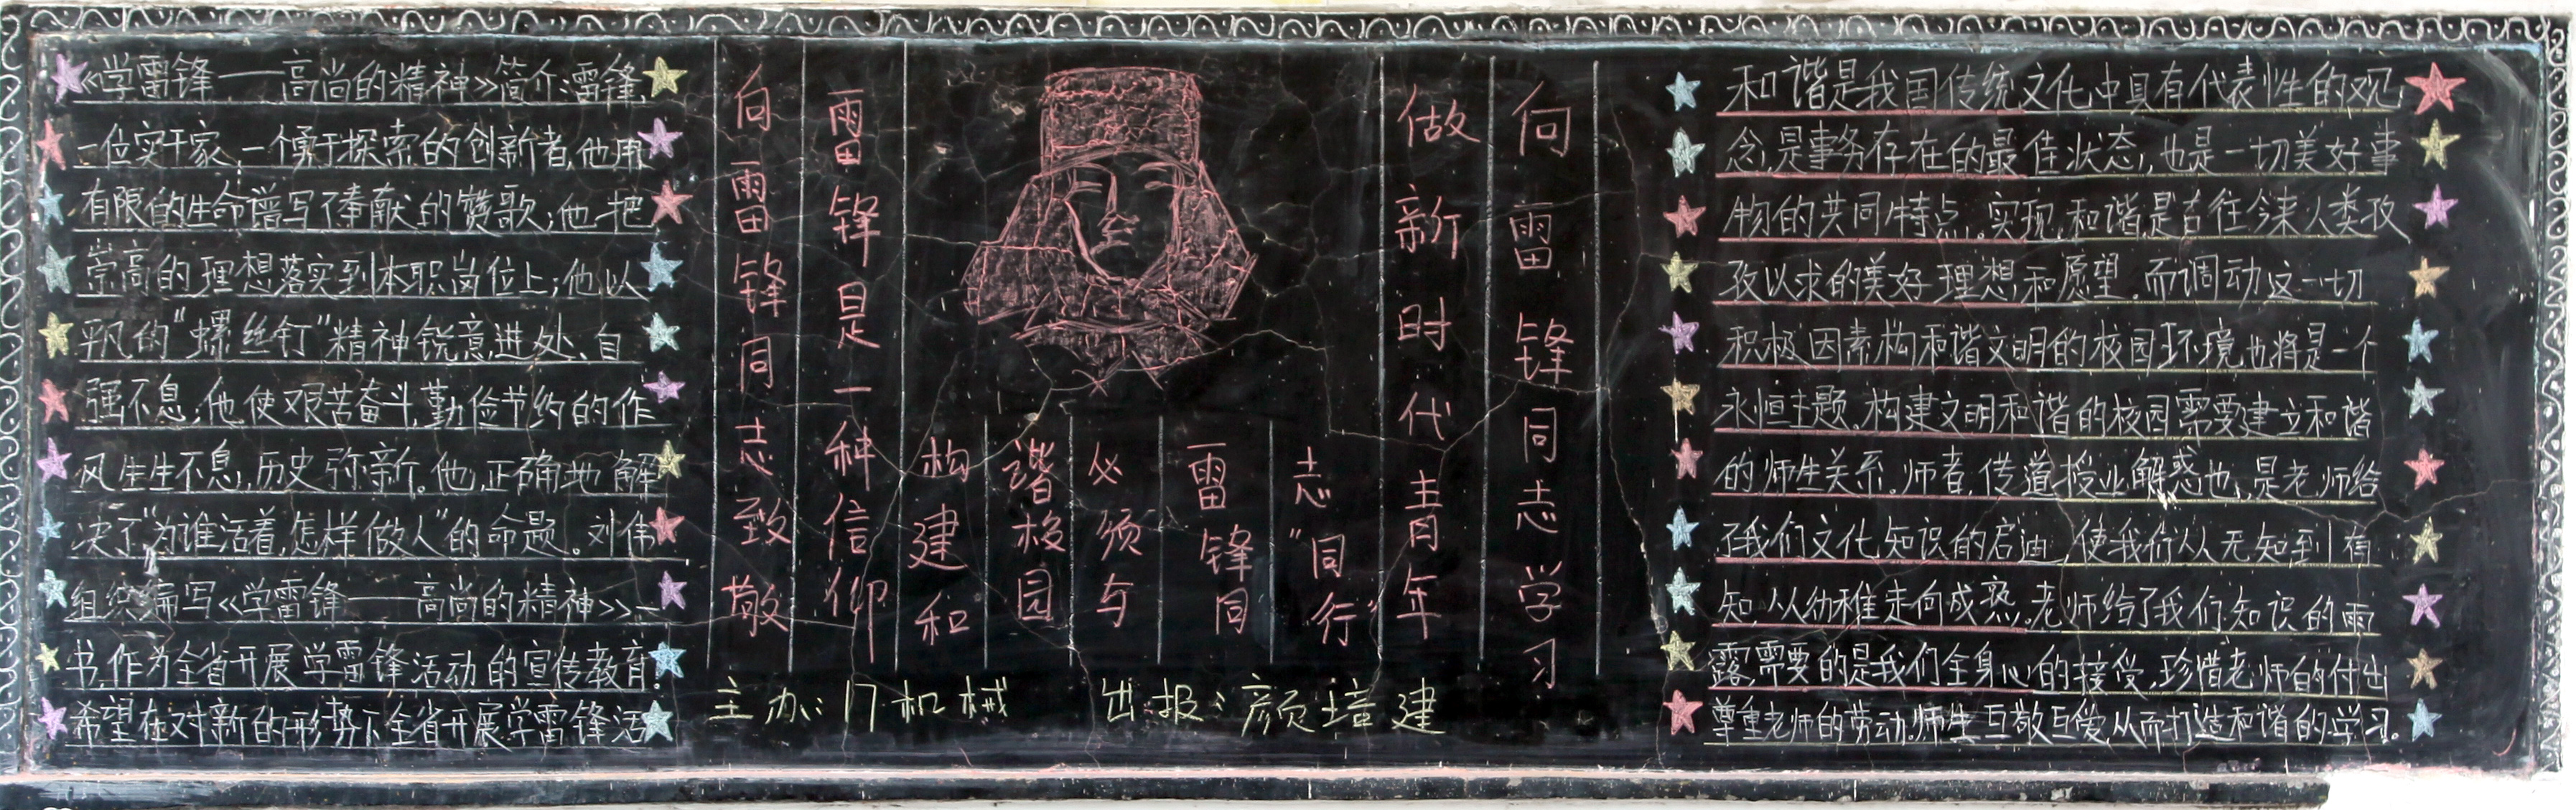 《学雷锋——高尚的精神》简介:雷锋,
一位实干家,一个勇于探索的创新者,他用
有限的生命谱写了奉献的赞歌;他把
崇高的理想落实到本职岗位上;他以
平凡的"螺丝钉"精神锐意进处、自
强不息;他使艰苦奋斗,勤俭节约的作
风生生不息,历史弥新。他正确地解
决了"为谁活着,怎样做人"的命题。刘伟
组织编写《学雷锋——高尚的精神》一
书,作为全省开展学雷锋活动的宣传教育.
希望在对新的形势下全省开展学雷锋活
向雷锋同志致敬
雷锋是一种信仰
构建和
谐校园
必须与
雷锋同
志"同行"
做新时代青年
向雷锋同志学习
主办:17机械 出报:颜培建
和谐是我国传统文化中具有代表性的观
念,是事务存在的最佳状态,也是一切美好事
物的共同特点。实现和谐是古往今来人类孜
孜以求的美好理想和愿望。而调动这一切
积极因素构和谐文明的校园环境也将是一个
永恒主题。构建文明和谐的校园需要建立和谐
的师生关系。师者,传道授业解惑也,是老师给
了我们文化知识的启迪,使我们从无知到有
知,从幼稚走向成熟。老师给了我们知识的雨
露需要的是我们全身心的接受,珍惜老师的付出
尊重老师的劳动.师生互敬互爱,从而打造和谐的学习。